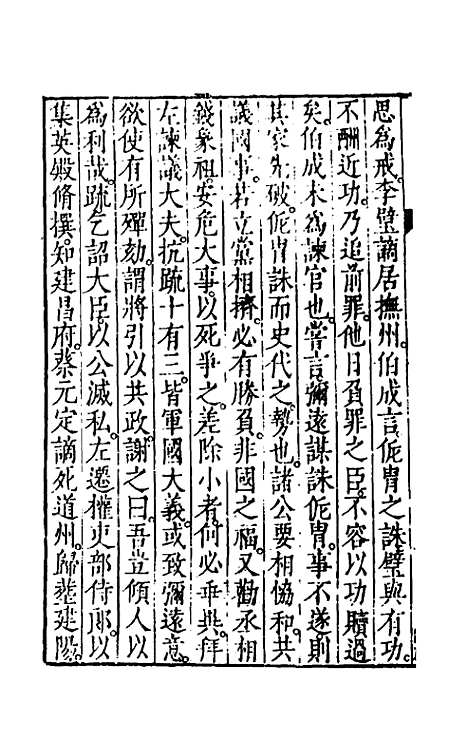 思為戒李璧謫居撫州伯成言侂冑之誅璧與有功
不酬近功乃追前罪他日負罪之臣不容以功贖過
矣伯成未為諫官也嘗言彌遠謀誅侂冑事不遂則
其家先破侂冑誅而史代之勢也諸公要相協和共
議國事若立黨相擠必有勝負非國之福又勸丞相
錢象祖安危大事以死爭之差除小者何必乖異拜
左諫議大夫抗疏十有三皆軍國大義或致彌遠意
欲使有所殫劾謂將引以共政謝之曰吾豈傾人以
為利哉疏乞詔大臣以公滅私左遷權吏部侍郎以
集英殿脩撰知建昌府蔡元定謫死道州歸塟建陽